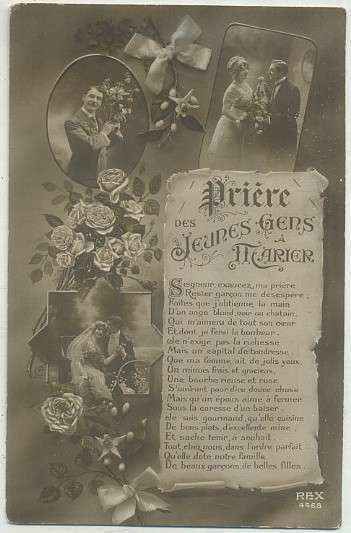 Prière
DES
Jeunes Gens
à
Marier
Seigneur, exaucez ma prière
Rester garçon me désespère ;
Faites que j'obtienne la main
D'un ange blond, noir ou châtain,
Qui m'aimera de tout son cœur
Et dont je ferai le bonheur.
Je n'exige pas la richesse
Mais un capital de tendresse.
Que ma femme ait de jolis yeux
Un minois frais et gracieux,
Une bouche rieuse et rose
S'ouvrant pour dire douce chose
Mais qu'un époux aime à fermer
Sous la caresse d'un baiser,
Je suis gourmand, qu'elle cuisine
De bons plats, d'excellente mine ;
Et sache tenir, à souhait
Tout chez nous, dans l'ordre parfait
Qu'elle dote notre famille
De beaux garçons, de belles filles.
REX
4568